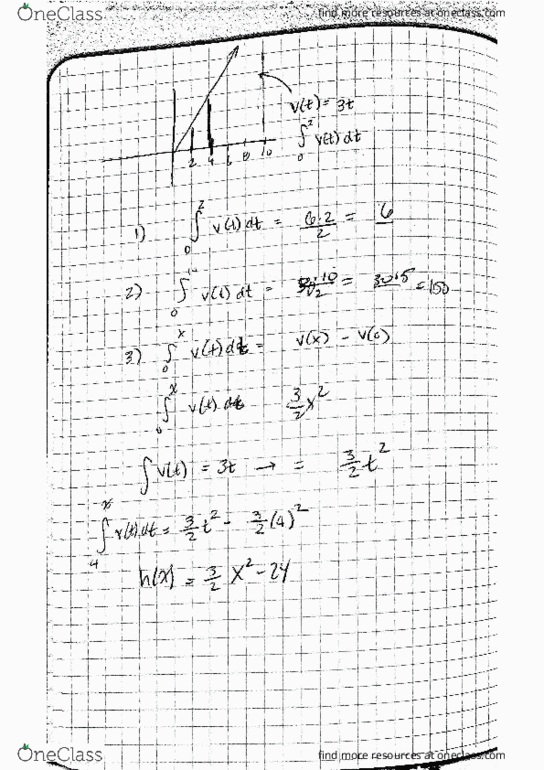 OneClass
find more resources at oneclass.com
v(t) = 3t
∫₀² v(t) dt
2 4 6 8 10
1) ∫₀² v(t) dt = 6·2/2 = 6
2) ∫₀ v(t) dt = = 30·5 = 150
3) ∫₀ˣ v(t) dt = v(x) - v(0)
∫₀ˣ v(t) dt 3/2 x²
∫ v(t) = 3t → = 3/2 t²
∫₄ˣ v(t) dt = 3/2 t² - 3/2 (4)²
h(x) = 3/2 x² - 24
OneClass
find more resources at oneclass.com